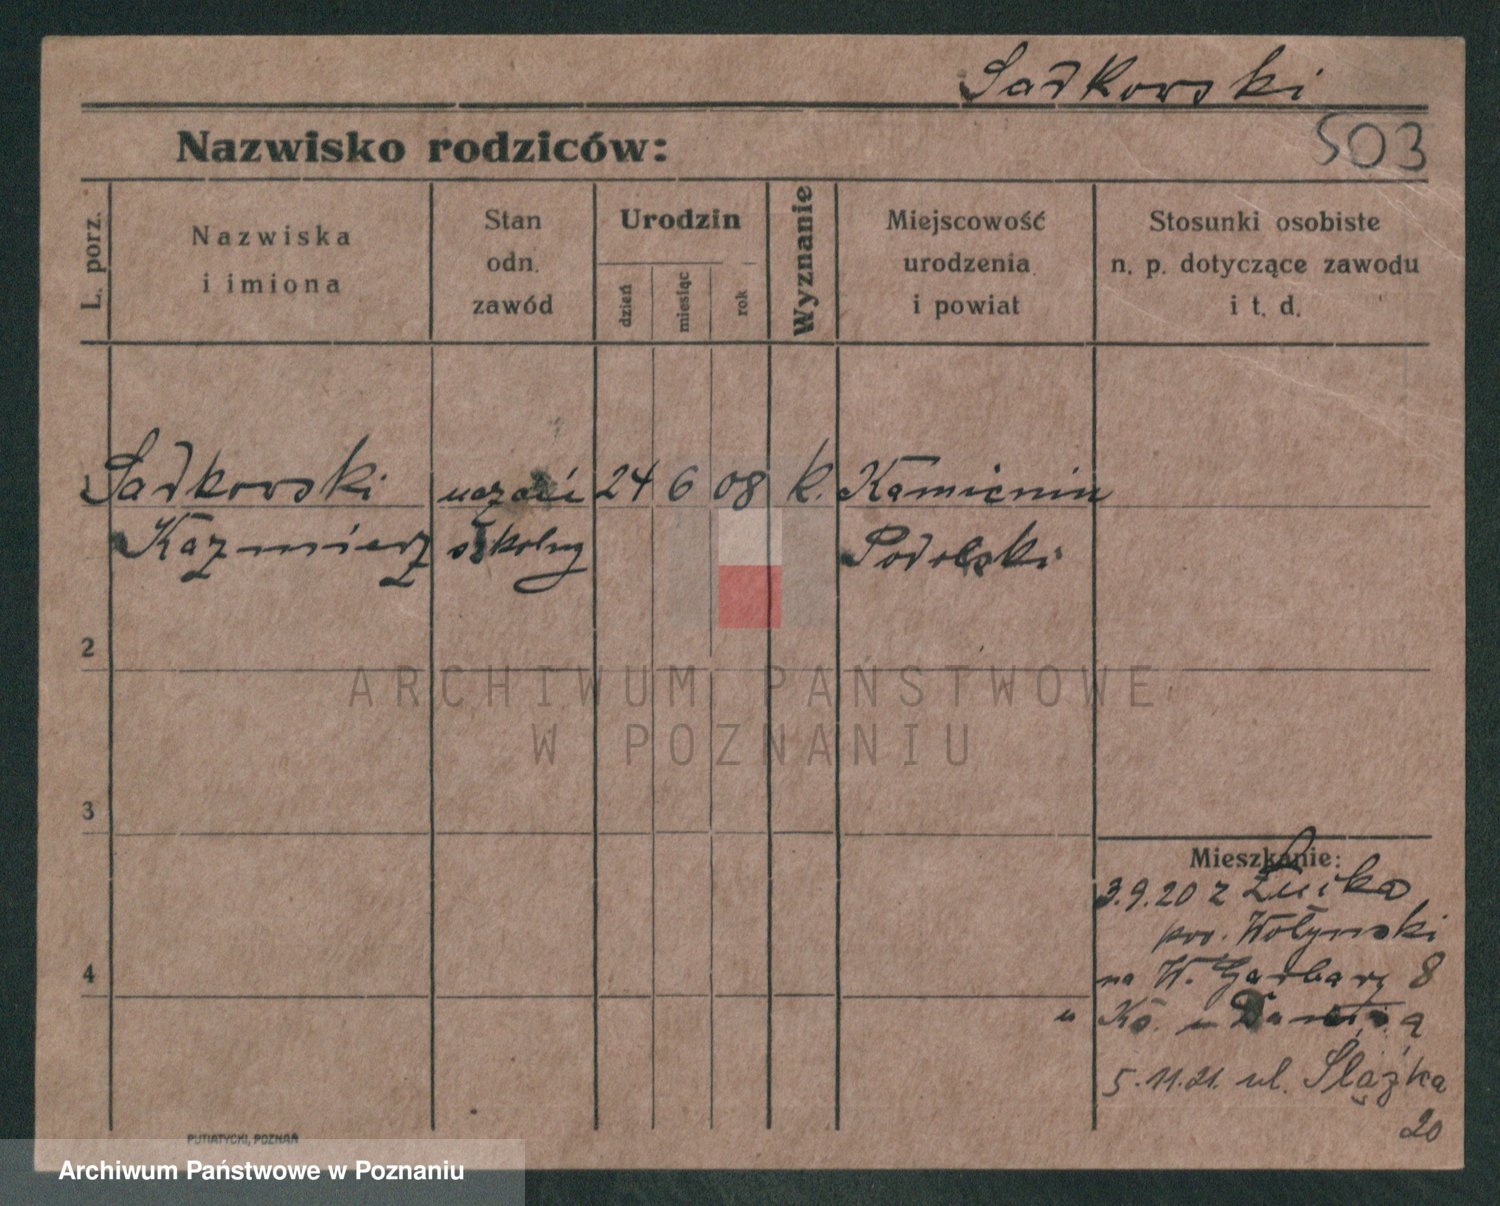 Sadkowski
Nazwisko rodziców:
503
L. porz.
Nazwiska
i imiona
Stan
odn.
zawód
Urodzin
dzień
miesiąc
rok
Wyznanie
Miejscowość
urodzenia
i powiat
Stosunki osobiste
n. p. dotyczące zawodu
i t. d.
Sadkowski uczeń 24 6 08 k.
Kazmierz szkolny Podolski
2
3
4
Mieszkanie:
3.9.20 z Łucka
pow. Wołynski
na W. Garbary 8
u
5.11.21. ul. Slązka
20
PUTIATYCKI, POZNAŃ
ARCHIWUM PAŃSTWOWE
W POZNANIU
Archiwum Państwowe w Poznaniu